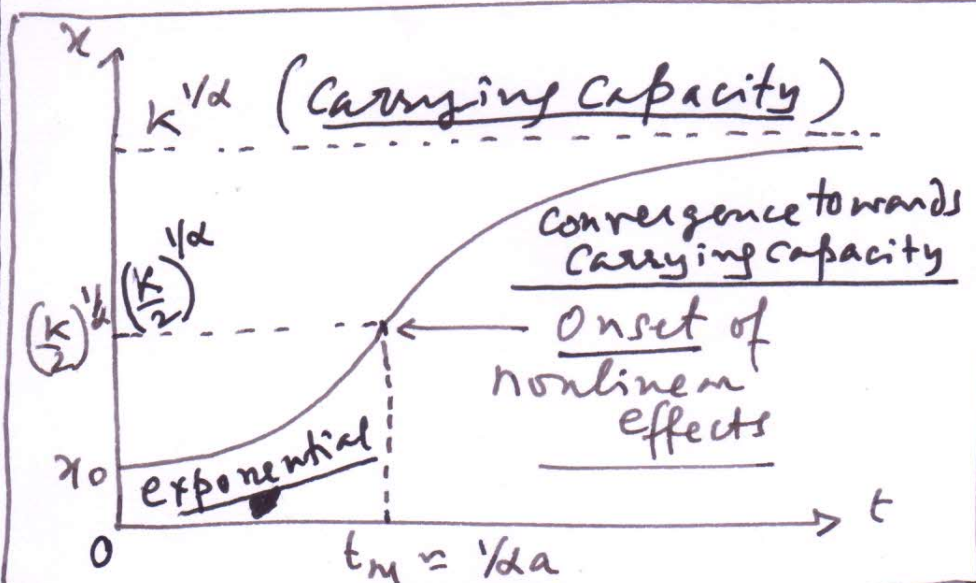 x
k^{1/α} (Carrying Capacity)
convergence towards
carrying capacity
(k/2)^{1/α} (k/2)^{1/α}
Onset of
nonlinear
effects
x₀
exponential
0
t_{nl} ≈ 1/αa
t